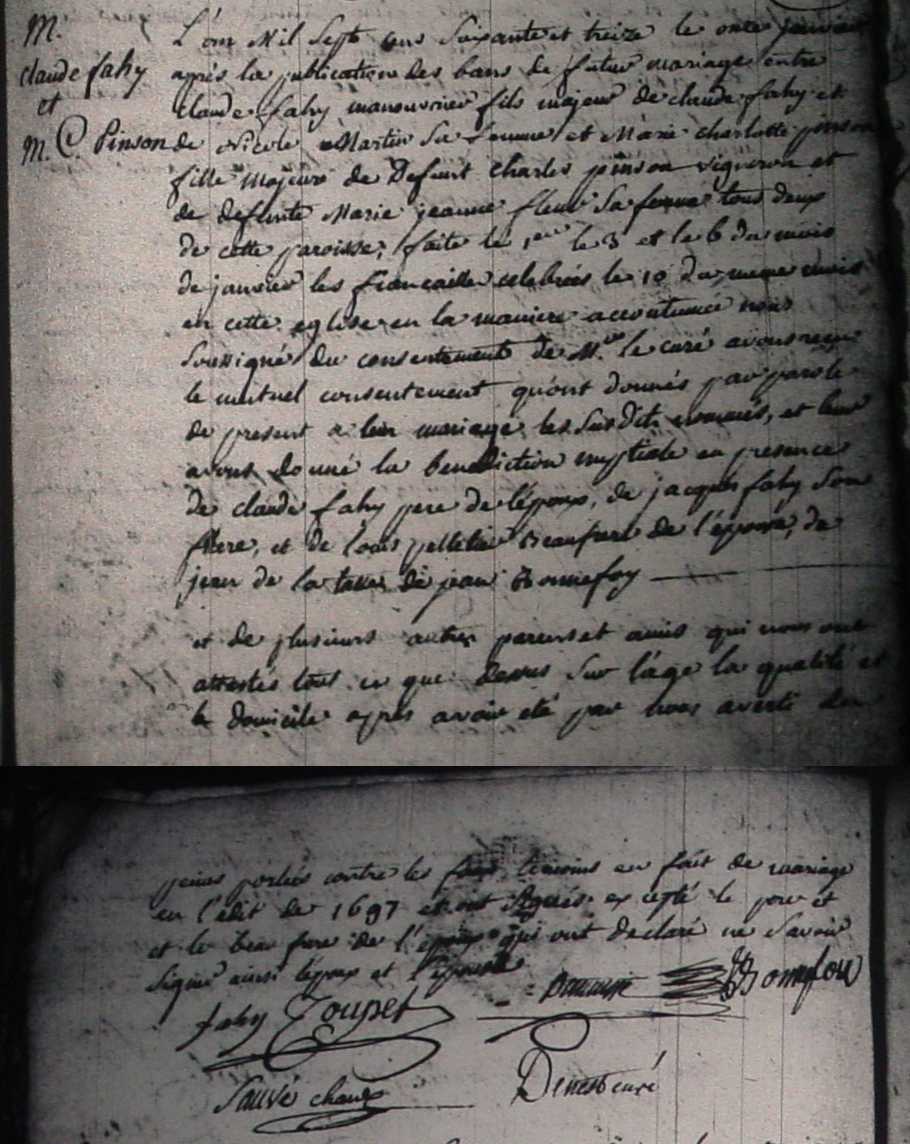 M.
claude fahy
et
M. C. Pinson
L'an Mil Sept cens Soixante et treize le onze janvier
après la publication des bans de futur mariage entre
claude fahy manouvrier fils majeur de claude fahy et
de Nicole Martin Sa femme et Marie charlotte pinson
fille majeure de Defunt charles pinson vigneron et
de defunte Marie jeanne fleur Sa femme tous deux
de cette paroisse, faite le 1er le 3 et le 6 du mois
de janvier les fiancailles celebrées le 10 du meme mois
en cette eglise en la maniere accoutumée nous
Soussigné du consentement de Mr le curé avons reçu
le mutuel consentement qu'ont donnés par parole
de present a leur mariage les Susdits nommés, et leur
avons donné la benediction nuptiale en presence
de claude fahy pere de l'époux, de jacques fahy Son
frere, et de louis pelletier Beaufrere de l'épouse, de
jean de la de jean Bonnefoy
et de plusieurs autres parens et amis qui nous ont
attestés tous ce que dessus Sur l'age la qualité et
le domicile après avoir été par nous averti des
peines portées contre les faux temoins en fait de mariage
en l'édit de 1697 et ont Signés excepté le pere et
et le beau frere de l'epoux qui ont declaré ne Savoir
Signer ainsi l'époux et l'épouse
fahy Toupet Bonnefou
Sauvé
curé